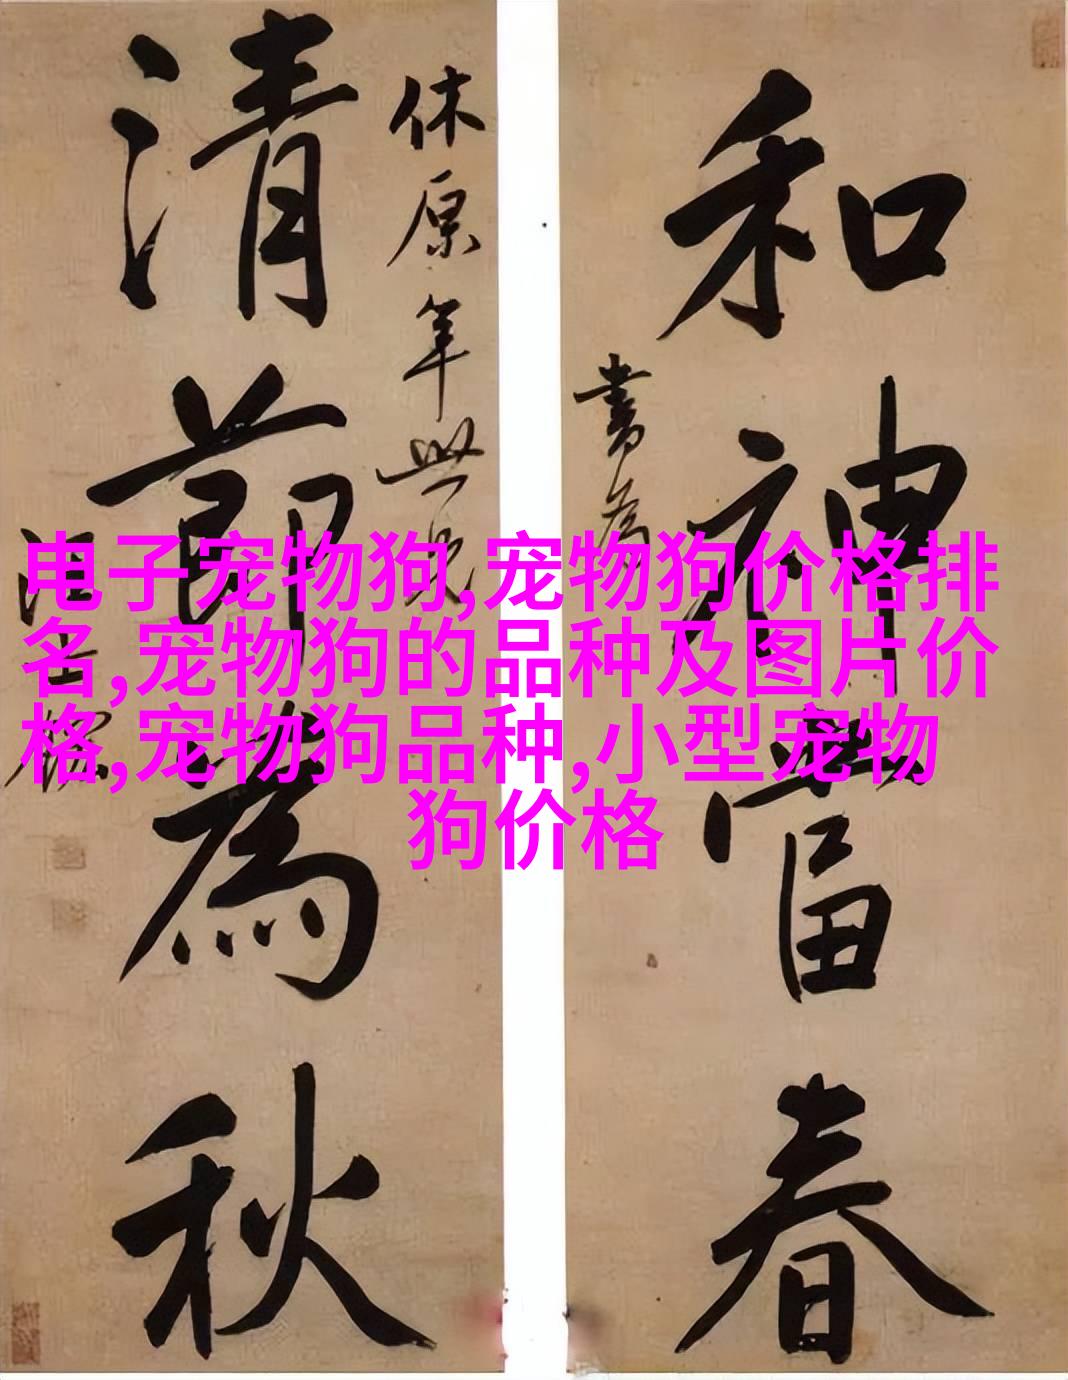 和神當春
書為
休原年世兄
清節為秋
汪士鋐
电子宠物狗,宠物狗价格排
名,宠物狗的品种及图片价
格,宠物狗品种,小型宠物
狗价格